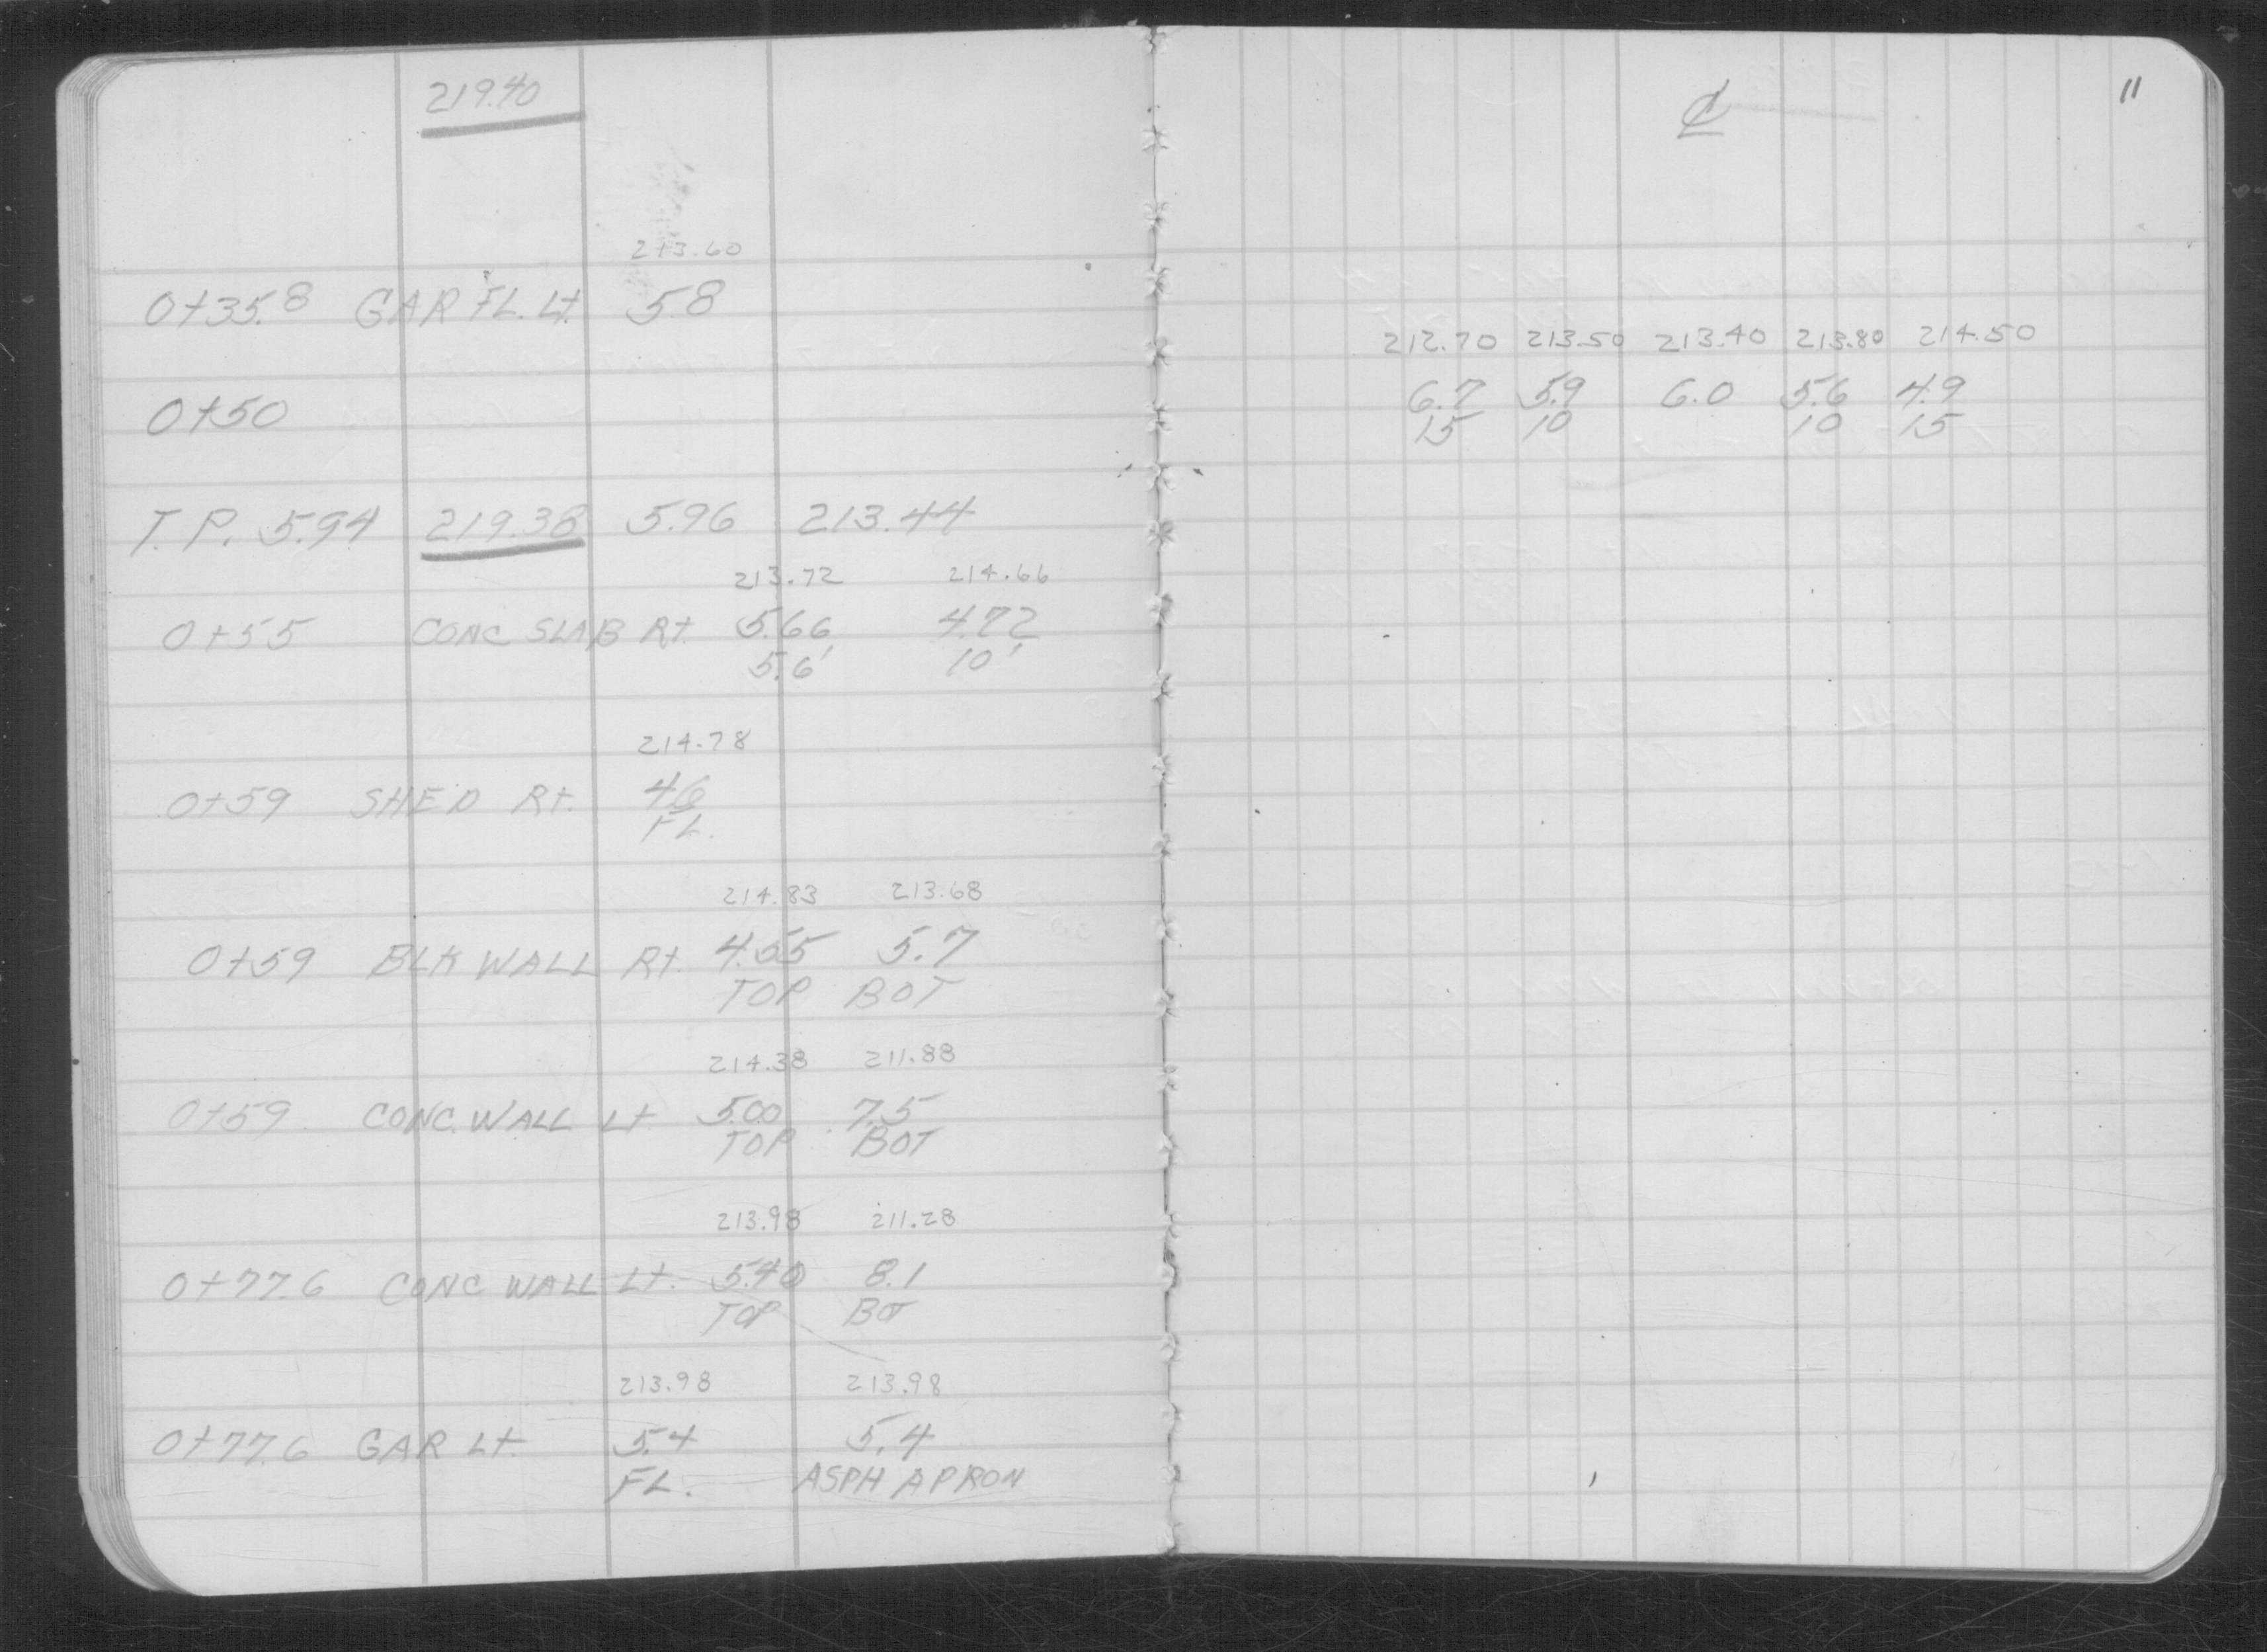 219.40
213.60
0+35.8 GAR FL. Lt. 5.8
0+50
T.P. 5.94 219.38 5.96 213.44
213.72 214.66
0+55 CONC SLAB Rt. 5.66 4.72
5.6' 10'
214.78
0+59 SHED Rt. 4.6
FL.
214.83 213.68
0+59 BLK WALL Rt. 4.55 5.7
TOP BOT
214.38 211.88
0+59 CONC. WALL Lt 5.00 7.5
TOP BOT
213.98 211.28
0+77.6 CONC WALL Lt. 5.40 8.1
TOP BOT
213.98 213.98
0+77.6 GAR Lt. 5.4 5.4
FL. ASPH APRON
11
℄
212.70 213.50 213.40 213.80 214.50
6.7 5.9 6.0 5.6 4.9
15 10 10 15